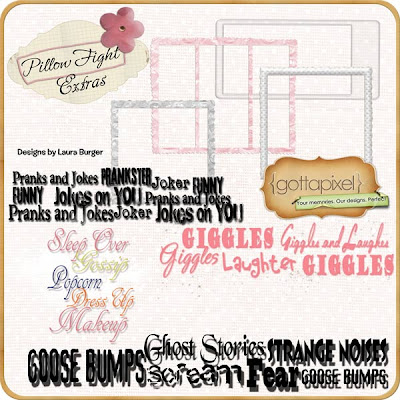 Pillow Fight
Extras
Designs by Laura Burger
{gottapixel}
Your memories. Our designs. Perfect.
Pranks and Jokes PRANKSTER Joker FUNNY
FUNNY Jokes on YOU Pranks and Jokes
Pranks and Jokes Joker Jokes on YOU
Sleep Over
Gossip
Popcorn
Dress Up
Makeup
GIGGLES Giggles and Laughes
Giggles Laughter GIGGLES
GOOSE BUMPS Ghost Stories STRANGE NOISES
Scream Fear GOOSE BUMPS